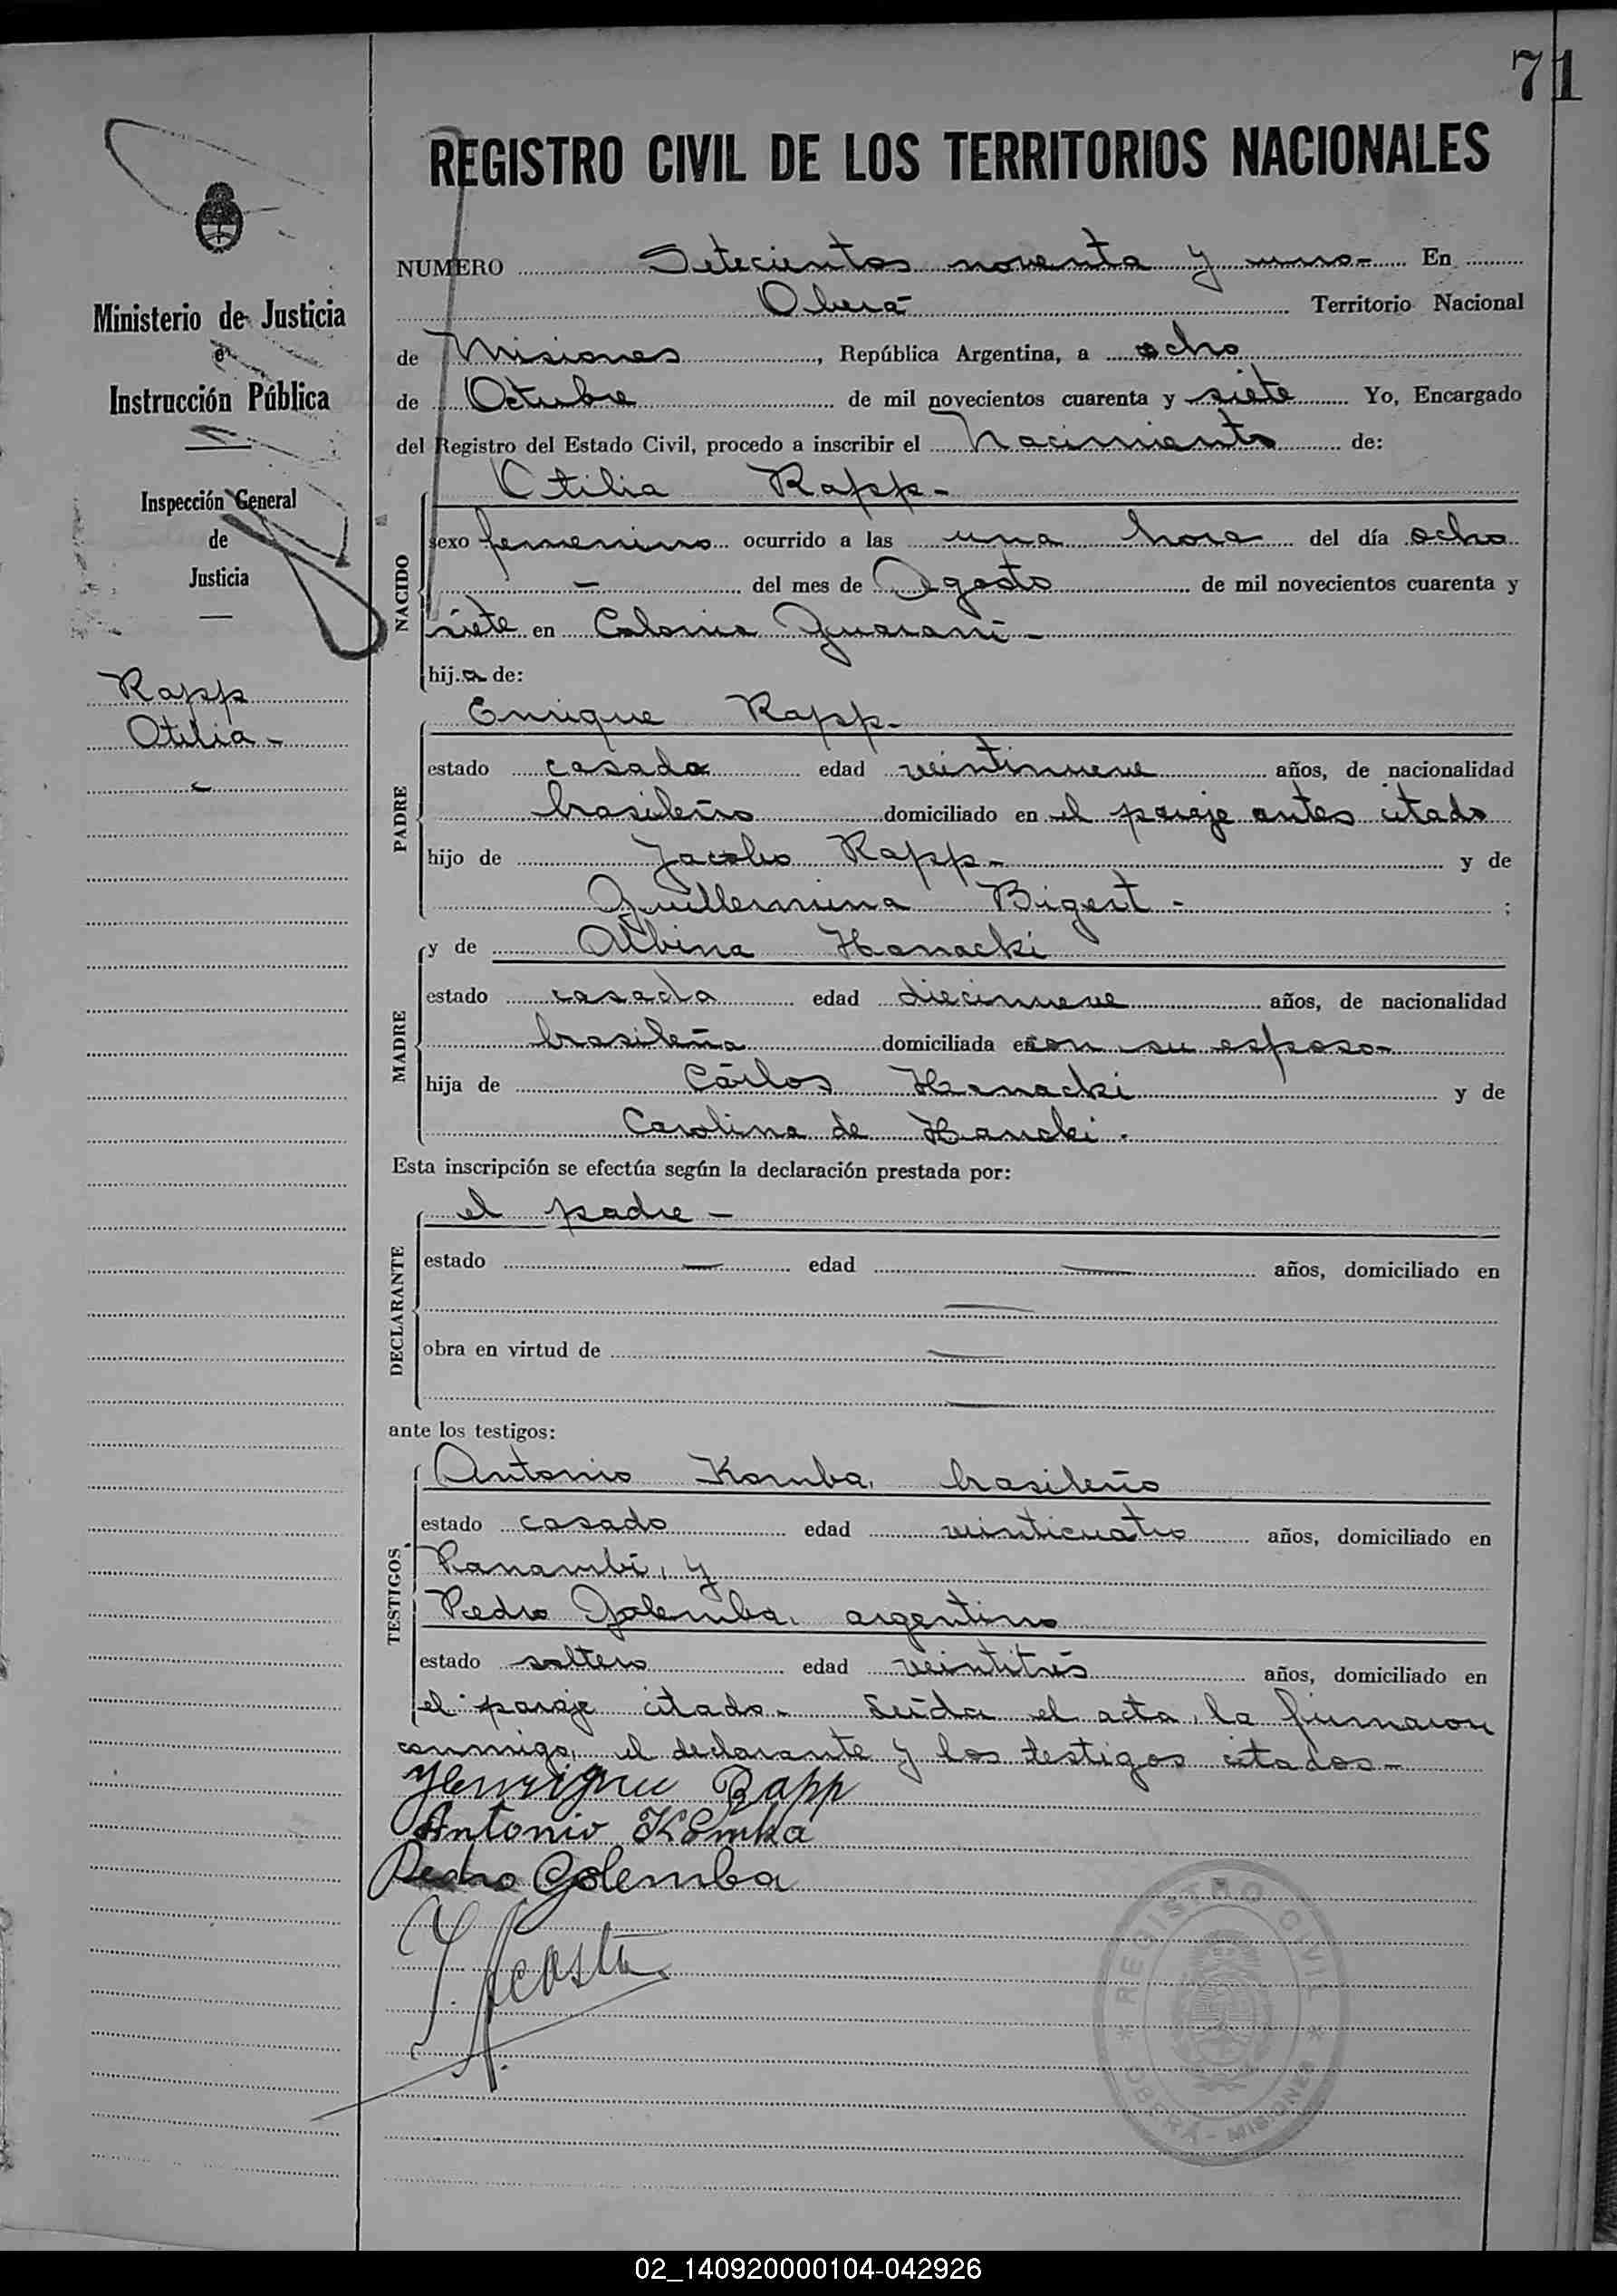 71
REGISTRO CIVIL DE LOS TERRITORIOS NACIONALES
Ministerio de Justicia
e
Instrucción Pública
Inspección General
de
Justicia
Rapp
Otilia-
NUMERO Setecientos noventa y uno- En
Oberá- Territorio Nacional
de Misiones, República Argentina, a ocho
de Octubre de mil novecientos cuarenta y siete Yo, Encargado
del Registro del Estado Civil, procedo a inscribir el Nacimiento de:
NACIDO
Otilia Rapp-
sexo femenino ocurrido a las una hora del día ocho
- del mes de Agosto de mil novecientos cuarenta y
siete en Colonia Guarani-
hija de:
PADRE
Enrique Rapp-
estado casado edad veintinueve años, de nacionalidad
brasileño domiciliado en el paraje antes citado
hijo de Jacobo Rapp- y de
Guillermina Bigert- ;
MADRE
y de Albina Hanacki
estado casada edad diecinueve años, de nacionalidad
brasileña domiciliada en con su esposo-
hija de Cárlos Hanacki y de
Carolina de Hancki.
Esta inscripción se efectúa según la declaración prestada por:
DECLARANTE
el padre-
estado — edad — años, domiciliado en
—
obra en virtud de —
—
ante los testigos:
TESTIGOS
Antonio Komba, brasileño
estado casado edad veinticuatro años, domiciliado en
Panambí, y
Pedro Golemba, argentino
estado soltero edad veintitrés años, domiciliado en
el paraje citado- Leída el acta, la firmaron
conmigo, el declarante y los testigos citados-
Henrique Rapp
Antonio Komba
Pedro Golemba
Y. Acosta
REGISTRO CIVIL
* OBERÁ - MISIONES *
02_140920000104-042926